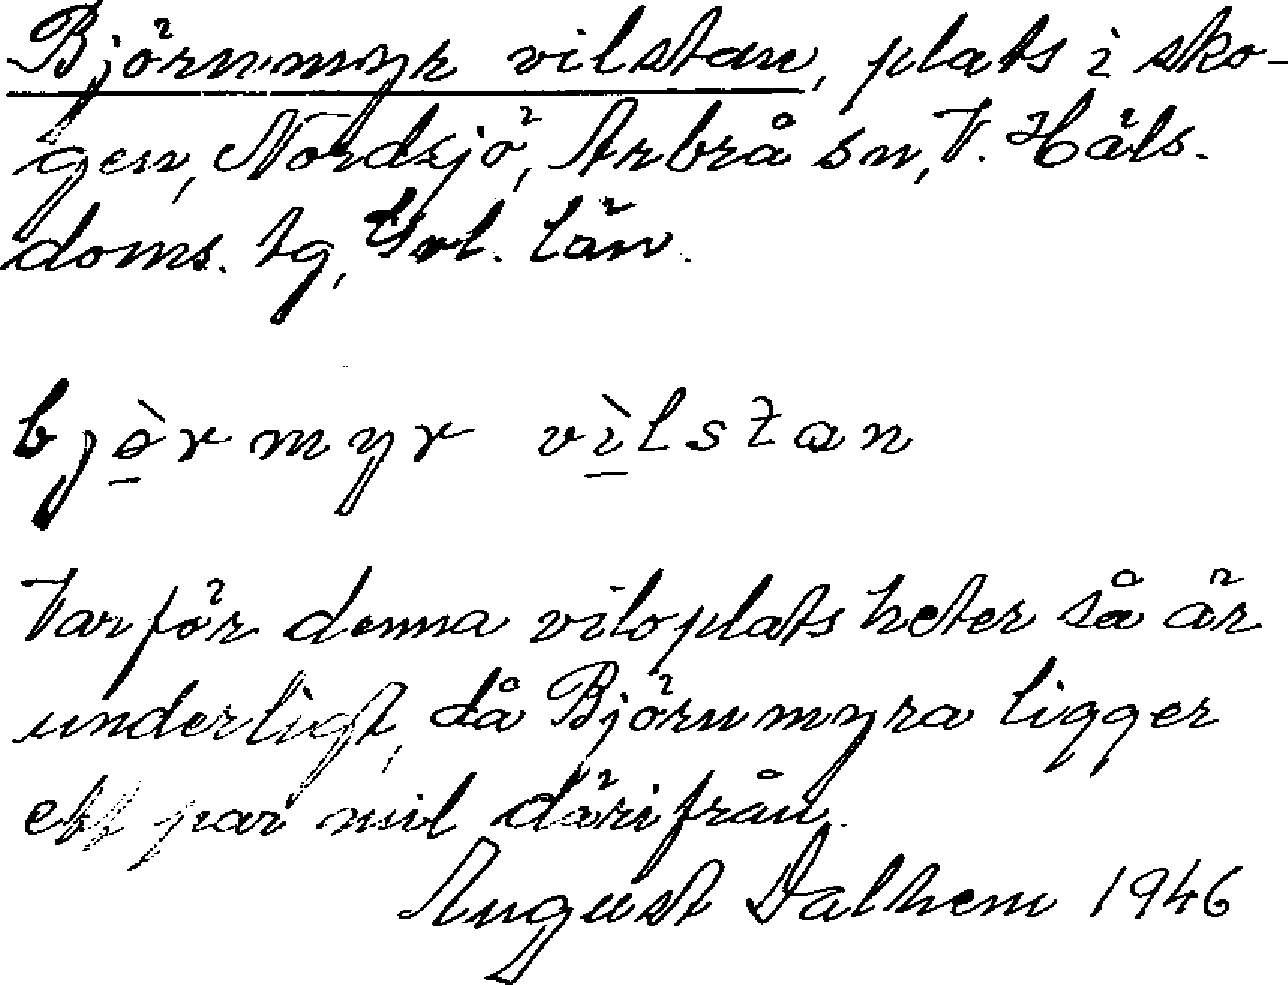 Björnmyr vilstan, plats i sko-
gen, Nordsjö, Arbrå sn, V. Häls.
doms. tg, Gvl. län.
bjø̲̀rmyr vì̲lstan
Varför denna viloplats heter så är
underligt, då Björnmyra ligger
ett par mil därifrån.
August Dalhem 1946